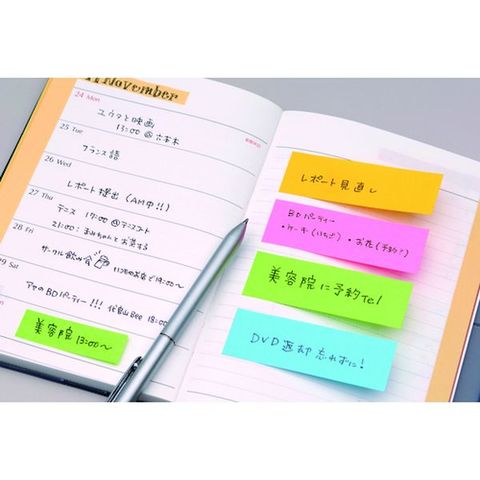 11 November
24 Mon
ユウタと映画
13:00 @ 六本木
25 Tue
フランス語
26 Wed
レポート提出 (AM中!!)
27 Thu
テニス 17:00 @テニスコート
28 Fri
21:00: まみちゃんとお茶する
サークル飲み会
19:00~
29 Sat
アヤのBDパーティー!!! 代官山Bee 18:00
美容院 13:00~
レポート見直し
BDパーティー
・ケーキ(いちご) ・お花(予約?)
美容院に予約tel!
DVD返却忘れずに!